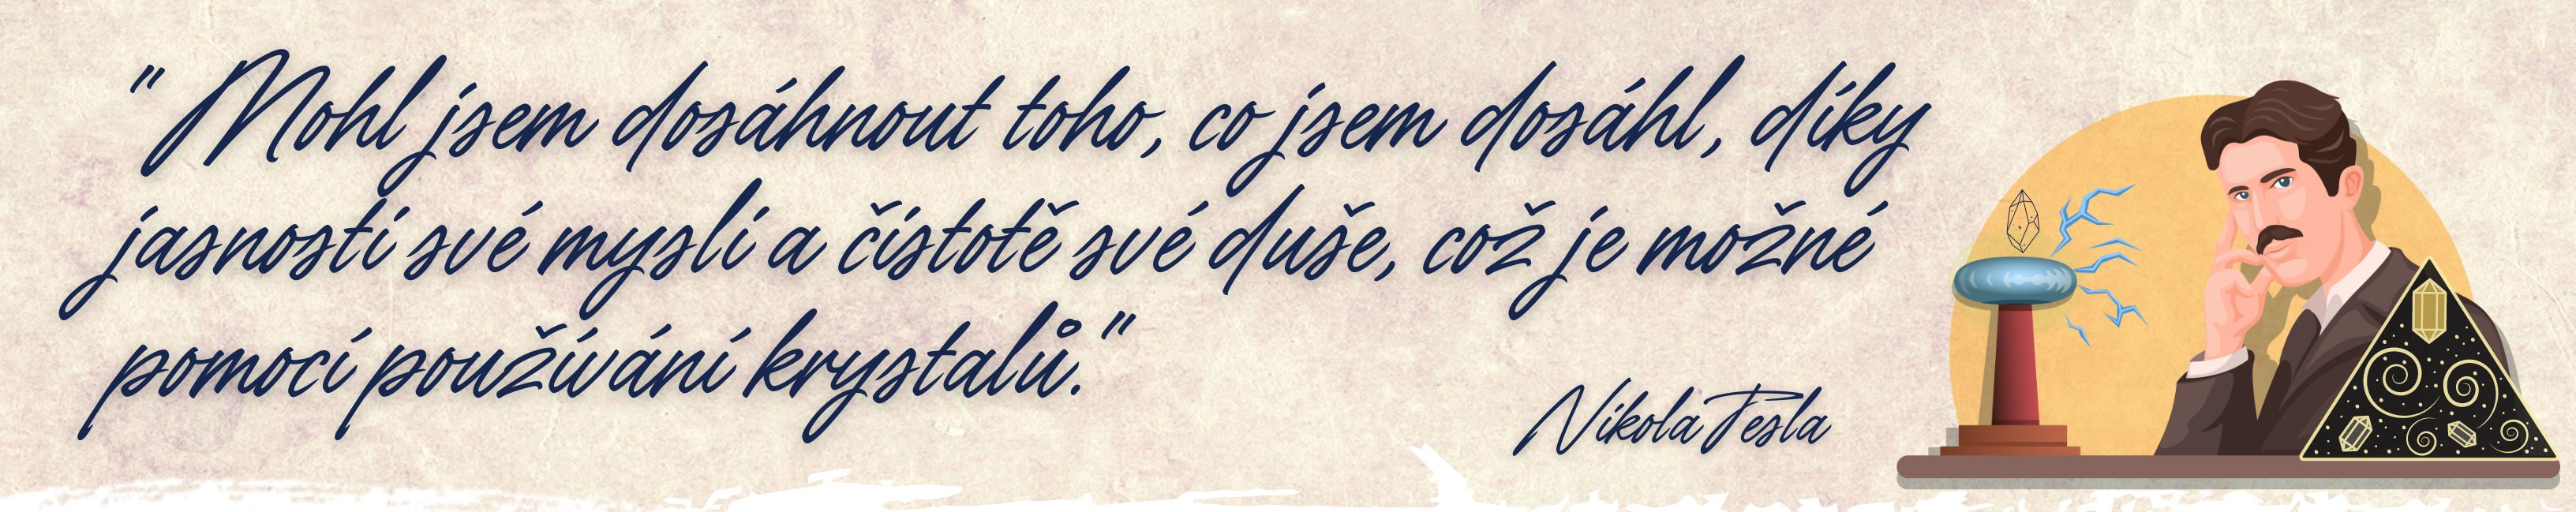 "Mohl jsem dosáhnout toho, co jsem dosáhl, díky
jasnosti své mysli a čistotě své duše, což je možné
pomocí používání krystalů."
Nikola Tesla